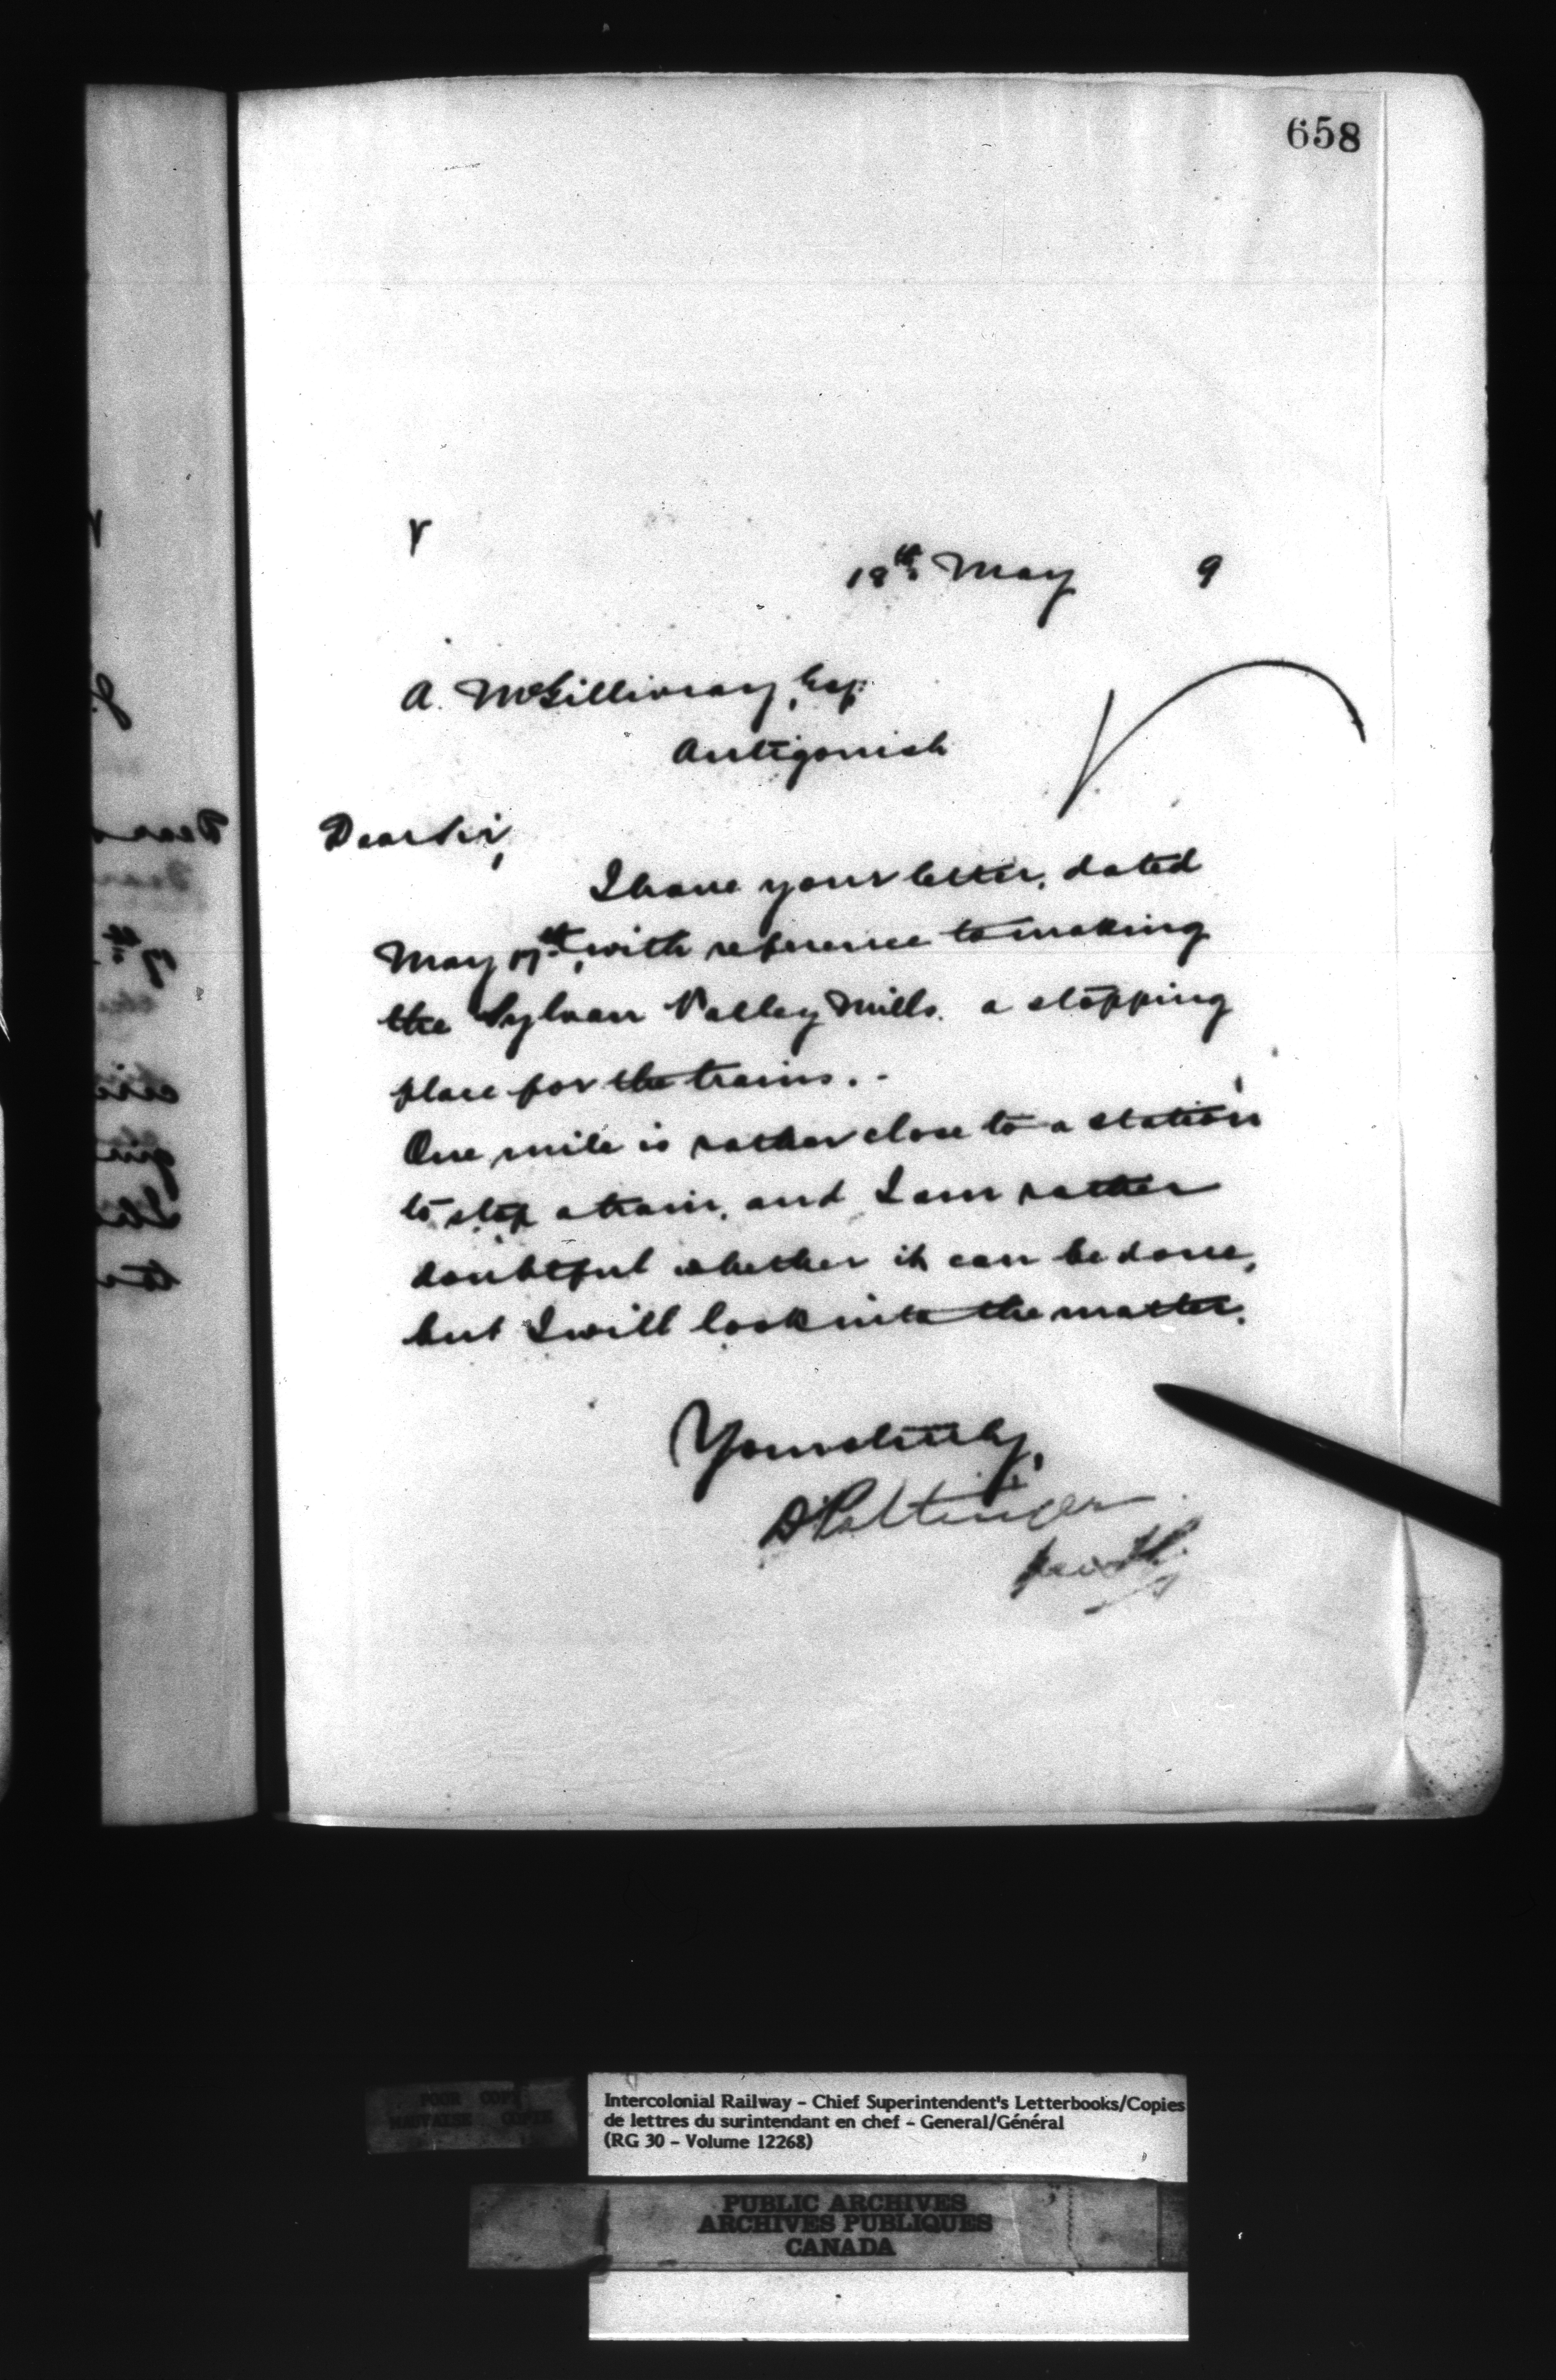 658
r
18th May 9
A. McGillivray, Esq.
Antigonish
Dear Sir,
I have your letter, dated
May 17th, with reference to making
the Sylvan Valley Mills a stopping
place for the trains. -
One mile is rather close to a station
to stop a train, and I am rather
doubtful whether it can be done,
but I will look into the matter.
Yours truly,
D Pottinger
Intercolonial Railway – Chief Superintendent's Letterbooks/Copies
de lettres du surintendant en chef – General/Général
(RG 30 – Volume 12268)
PUBLIC ARCHIVES
ARCHIVES PUBLIQUES
CANADA